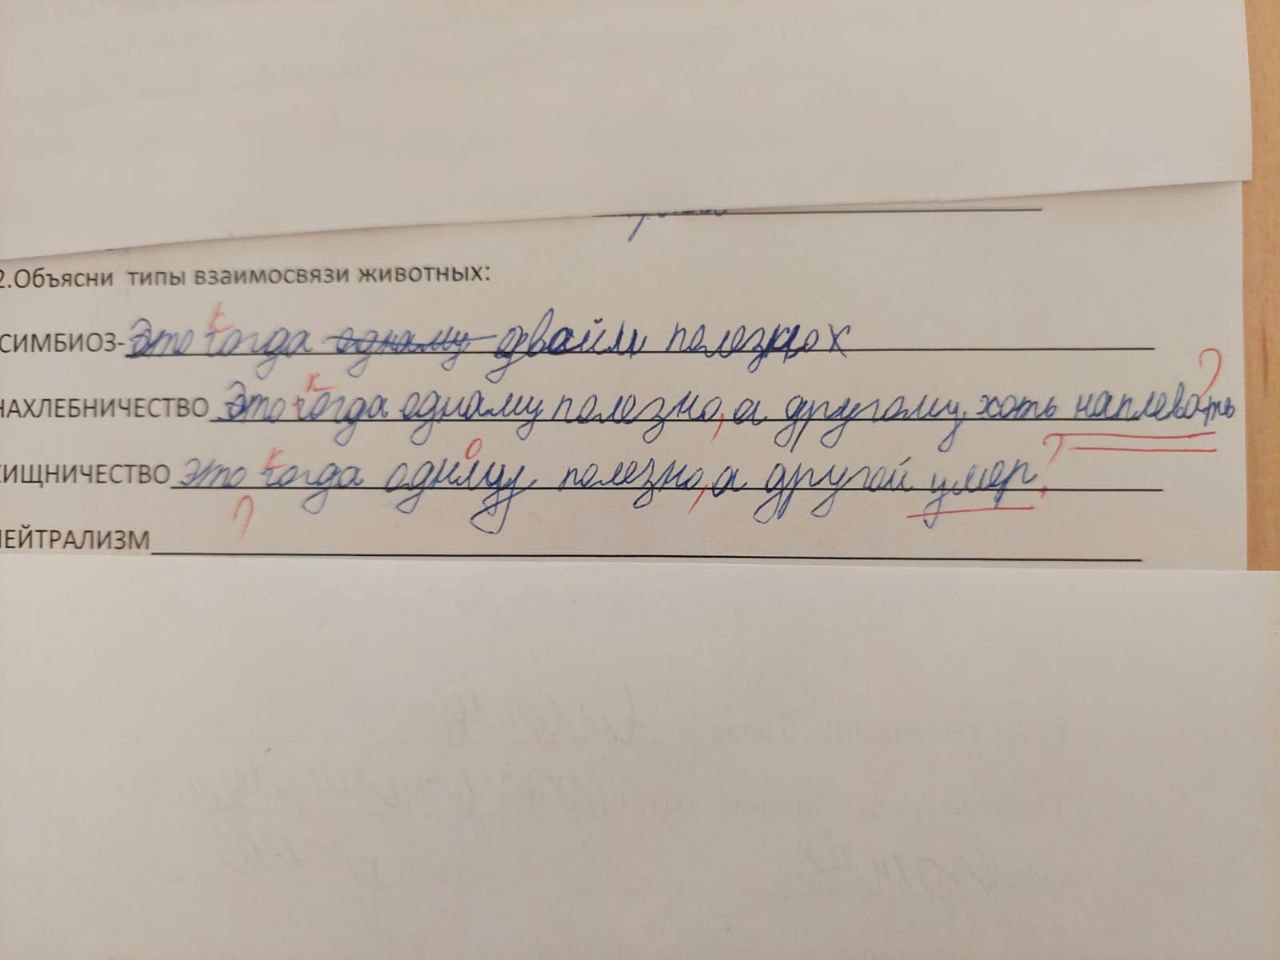 2.Объясни типы взаимосвязи животных:
СИМБИОЗ-Это тогда одному двойм полезно х
НАХЛЕБНИЧЕСТВО Это тогда одному полезно, а другому хоть наплевать
ХИЩНИЧЕСТВО это тогда одному полезно, а другой умер.
НЕЙТРАЛИЗМ